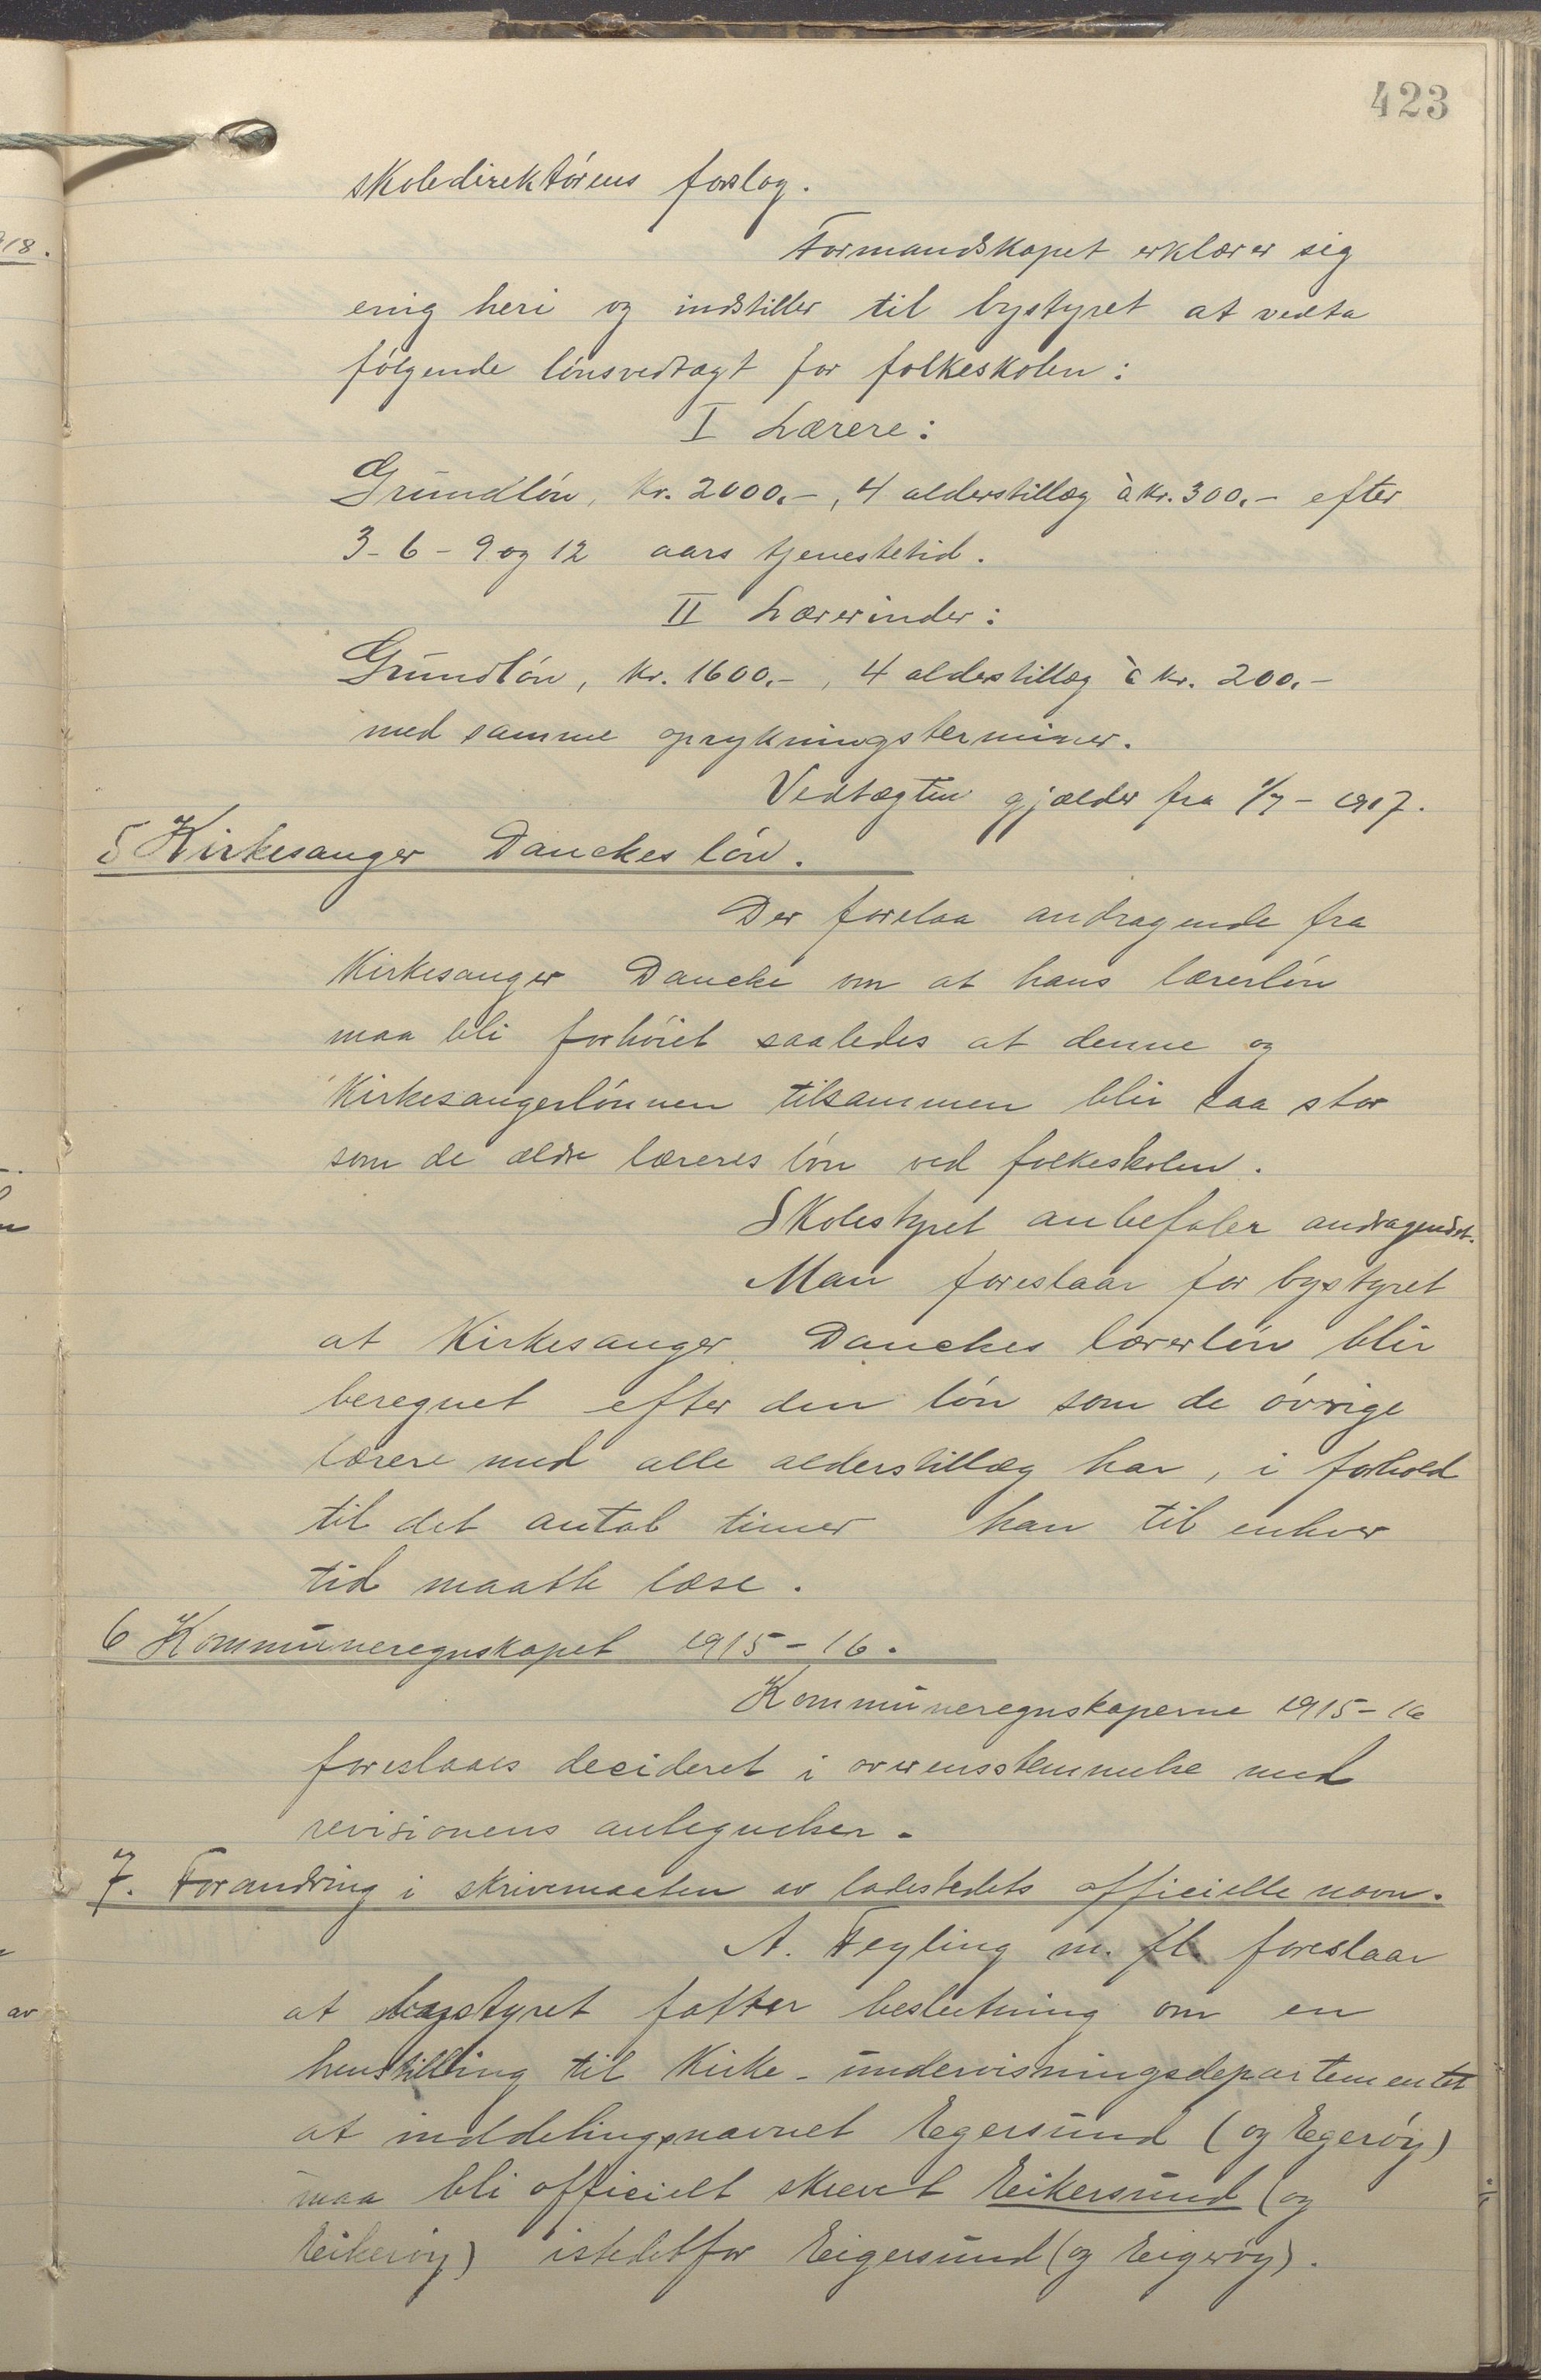 423
18.
skoledirektørens forslag.
Formandskapet erklærer sig
enig heri og indstiller til bystyret at vedta
følgende lønsvedtægt for folkeskolen:
I Lærere:
Grundløn, kr. 2000.-, 4 alderstillæg à kr. 300.- efter
3-6-9 og 12 aars tjenestetid.
II Lærerinder:
Grundløn, kr. 1600.-, 4 alderstillæg à kr. 200.-
med samme oprykningsterminer.
Vedtægten gjælder fra 1/7-1917.
5 Kirkesanger Danckes løn.
Der forelaa andragende fra
Kirkesanger Dancke om at hans lærerløn
maa bli forhøiet saaledes at denne og
Kirkesangerlønnen tilsammen blir saa stor
som de ældre læreres løn ved folkeskolen.
Skolestyret anbefaler andragendet.
Man foreslaar for bystyret
at Kirkesanger Danckes lærerløn blir
beregnet efter den løn som de øvrige
lærere med alle alderstillæg har, i forhold
til det antal timer han til enhver
tid maatte læse.
6 Kommuneregnskapet 1915-16.
Kommuneregnskaperne 1915-16
foreslaaes decideret i overensstemmelse med
revisionens antegnelser.
7. Forandring i skrivemaaten av ladestedets officielle navn.
A. Feyling m. fl. foreslaar
at bystyret fatter beslutning om en
henstilling til Kirke- undervisningsdepartementet
at inddelingsnavnet Egersund (og Egerøy)
maa bli officielt skrevet Eikersund (og
Eikerøy) istedetfor Eigersund (og Eigerøy).
av